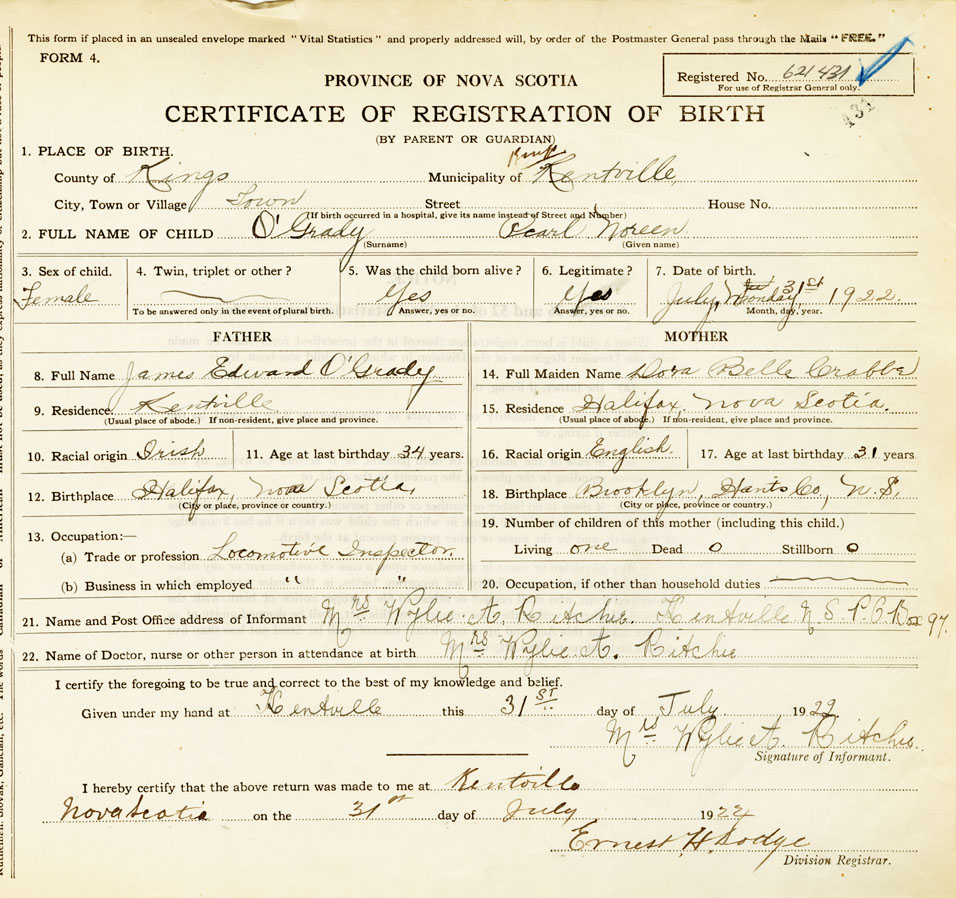 This form if placed in an unsealed envelope marked "Vital Statistics" and properly addressed will, by order of the Postmaster General pass through the Mails "FREE."
FORM 4.
Registered No. 621431
For use of Registrar General only.
431
PROVINCE OF NOVA SCOTIA
CERTIFICATE OF REGISTRATION OF BIRTH
(BY PARENT OR GUARDIAN)
1. PLACE OF BIRTH.
County of Kings Municipality of Kings Kentville,
City, Town or Village Town Street House No.
(If birth occurred in a hospital, give its name instead of Street and Number)
2. FULL NAME OF CHILD O'Grady Pearl Noreen
(Surname) (Given name)
3. Sex of child. 4. Twin, triplet or other? 5. Was the child born alive? 6. Legitimate? 7. Date of birth.
Female Yes Yes July, Monday, 31st 1922.
To be answered only in the event of plural birth. Answer, yes or no. Answer, yes or no. Month, day, year.
FATHER MOTHER
8. Full Name James Edward O'Grady 14. Full Maiden Name Dora Belle Crabbe
9. Residence. Kentville 15. Residence Halifax, Nova Scotia.
(Usual place of abode.) If non-resident, give place and province. (Usual place of abode.) If non-resident, give place and province.
10. Racial origin Irish 11. Age at last birthday 34 years. 16. Racial origin English. 17. Age at last birthday 31 years
12. Birthplace Halifax, Nova Scotia, 18. Birthplace Brooklyn, Hants Co, N.S.
(City or place, province or country.) (City or place, province or country.)
13. Occupation:— 19. Number of children of this mother (including this child.)
(a) Trade or profession Locomotive Inspector. Living one Dead 0 Stillborn 0
(b) Business in which employed " " 20. Occupation, if other than household duties
21. Name and Post Office address of Informant Mrs Wylie A. Ritchie. Kentville N.S. P.O. Box 97.
22. Name of Doctor, nurse or other person in attendance at birth Mrs Wylie A. Ritchie
I certify the foregoing to be true and correct to the best of my knowledge and belief.
Given under my hand at Kentville this 31st day of July 1922.
Mrs Wylie A. Ritchie.
Signature of Informant.
I hereby certify that the above return was made to me at Kentville
Nova Scotia on the 31st day of July 1922
Ernest H. Dodge
Division Registrar.